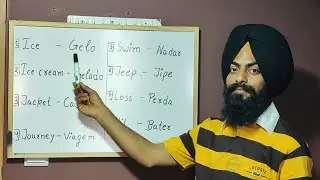 1 Ice - Gelo
2 Ice cream - Gelado
3 Jacket - Ca
4 Journey - Viagem
5 Swim - Nadar
Jeep - Jipe
Loss - Perda
- Bater